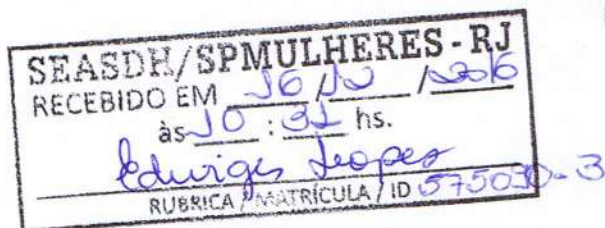 SEASDH/SPMULHERES-RJ
RECEBIDO EM 16/12/2016
às 10:32 hs.
Edwiges Lopes
RUBRICA / MATRÍCULA / ID 575090-3